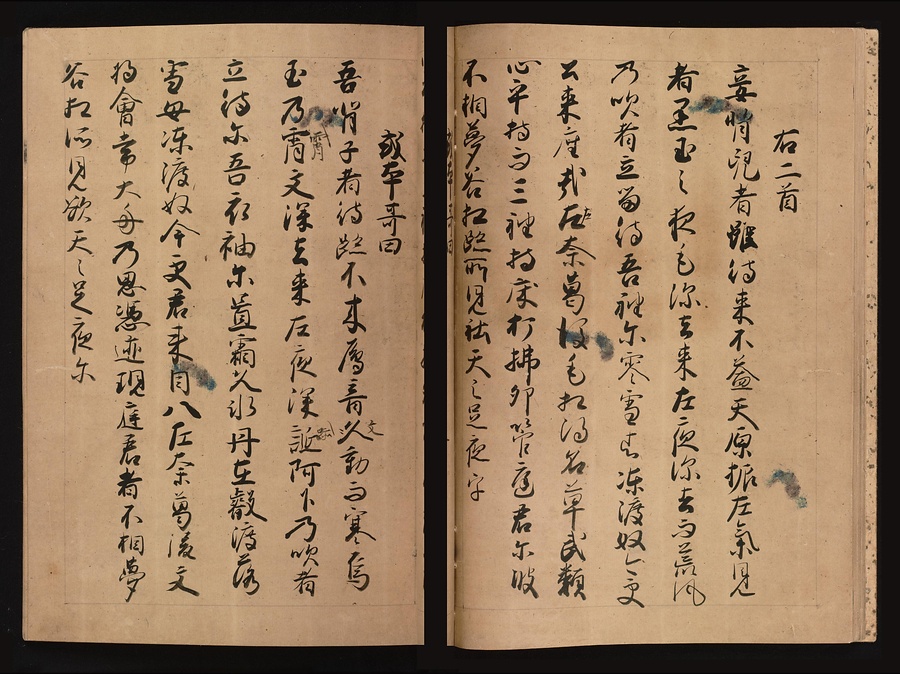 右二首
妾悄兒者雖待来不益天原振左氣見
者黒玉之夜毛深去来左夜深去而荒風
乃吹者立留待吾袖尓零雪者凍渡奴今更
公来座哉左奈葛後毛相得名草武類
心乎持而三袖持床打拂卯管庭君尓波
不相夢谷相跡所見社天之足夜乎
或本哥曰
吾哨子者待跡不来鴈音久動而寒烏
玉乃宵文深去来左夜深跡阿下乃吹者
立待尓吾衣袖尓置霜文氷丹左叡渡落
雪母凍渡奴今更君来目八左奈葛後文
将會常大舟乃思憑迹現庭君者不相夢
谷相所見欲天之足夜尓